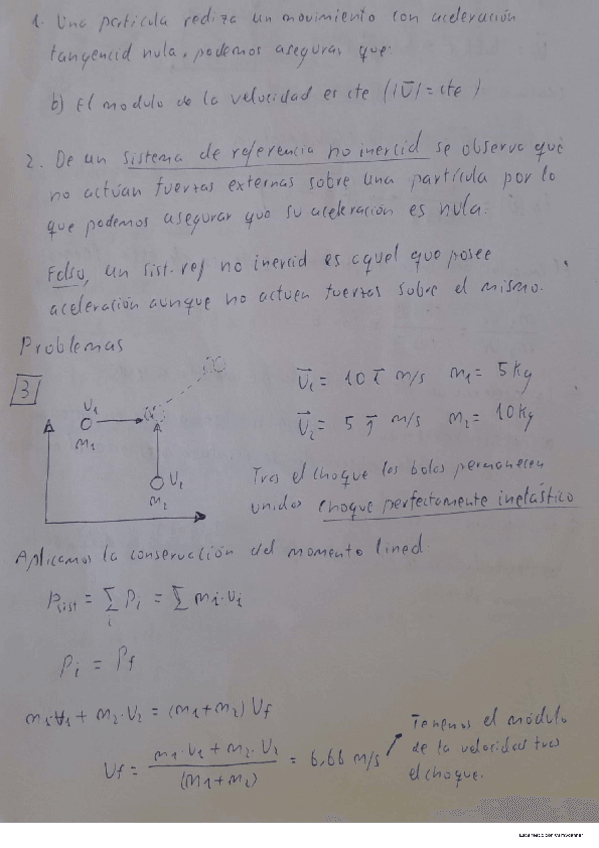 1. Una partícula realiza un movimiento con aceleración
tangencial nula, podemos asegurar que:
b) El modulo de la velocidad es cte (|v̅| = cte)
2. De un sistema de referencia no inercial se observa que
no actúan fuerzas externas sobre una partícula por lo
que podemos asegurar que su aceleración es nula.
Falso, un sist. ref no inercial es aquel que posee
aceleración aunque no actuen fuerzas sobre el mismo.
Problemas
3
v⃗₁ = 10 i⃗ m/s m₁ = 5 kg
v⃗₂ = 5 j⃗ m/s m₂ = 10 kg
v₁
m₁
v₂
m₂
Tras el choque las bolas permanecen
unidas choque perfectamente inelástico
Aplicamos la conservación del momento lineal
P_sist = Σ_i p_i = Σ m_i·v_i
P_i = P_f
m₁·v₁ + m₂·v₂ = (m₁+m₂) v_f
v_f = (m₁·v₁ + m₂·v₂)/(m₁+m₂) = 6,66 m/s
Tenemos el módulo
de la velocidad tras
el choque.